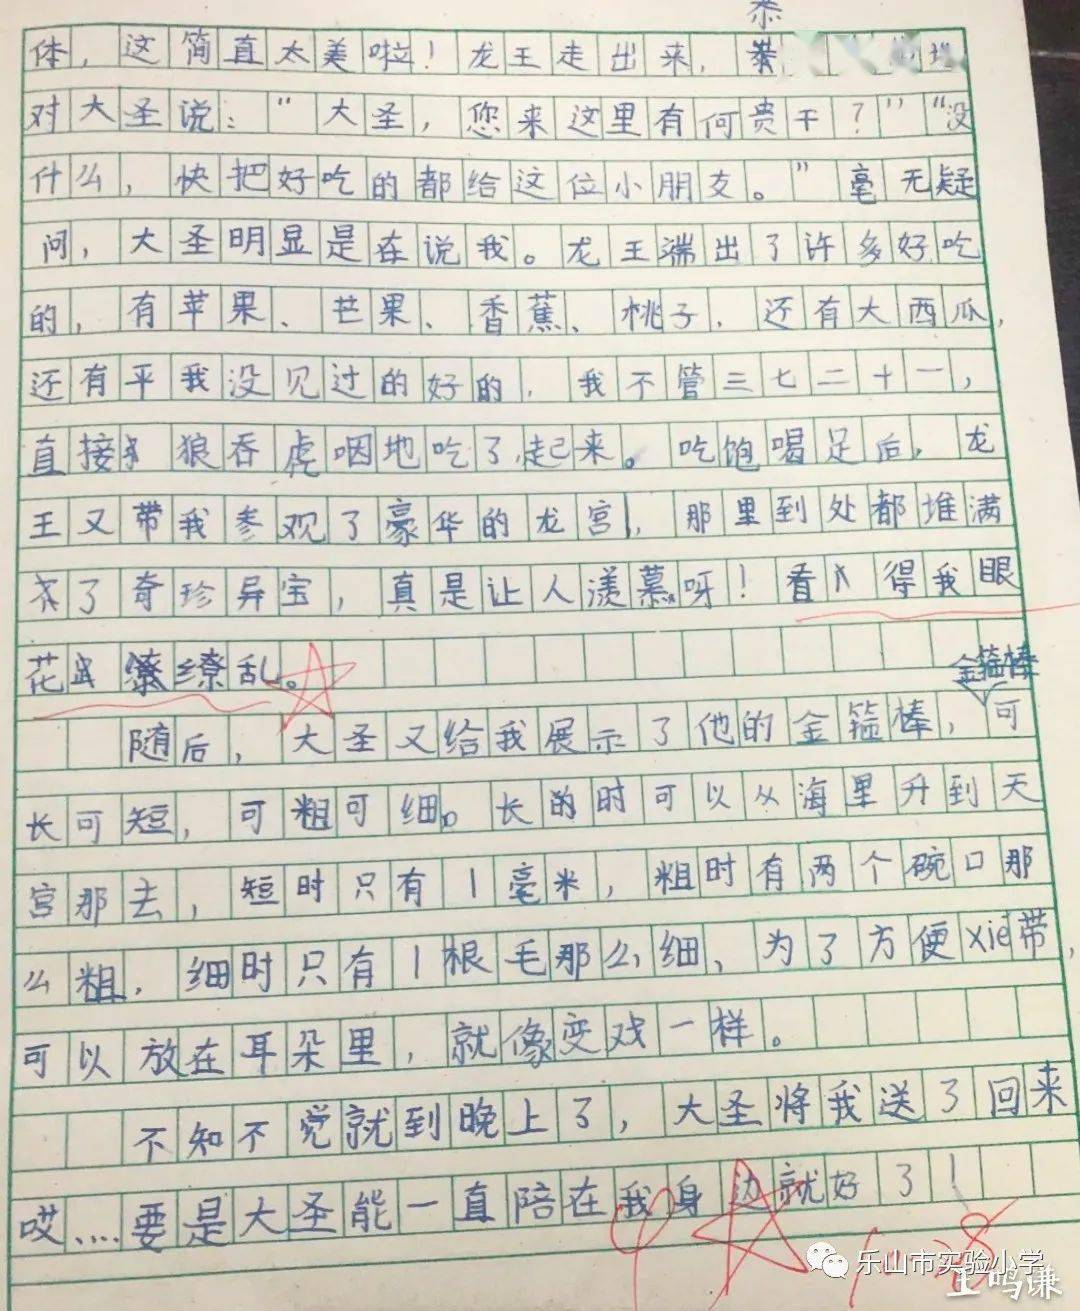 恭
体，这简直太美啦！龙王走出来，地
对大圣说：“大圣，您来这里有何贵干？”“没
什么，快把好吃的都给这位小朋友。”毫无疑
问，大圣明显是在说我。龙王端出了许多好吃
的，有苹果、芒果、香蕉、桃子，还有大西瓜，
还有平我没见过的好的，我不管三七二十一，
直接狼吞虎咽地吃了起来。吃饱喝足后，龙
王又带我参观了豪华的龙宫，那里到处都堆满
了奇珍异宝，真是让人羡慕呀！看得我眼
花缭乱。
金箍棒
随后，大圣又给我展示了他的金箍棒，可
长可短，可粗可细。长的时可以从海里升到天
宫那去，短时只有1毫米，粗时有两个碗口那
么粗，细时只有1根毛那么细、为了方便xie带，
可以放在耳朵里，就像变戏一样。
不知不觉就到晚上了，大圣将我送了回来
哎....要是大圣能一直陪在我身边就好了！
乐山市实验小学
王鸣谦